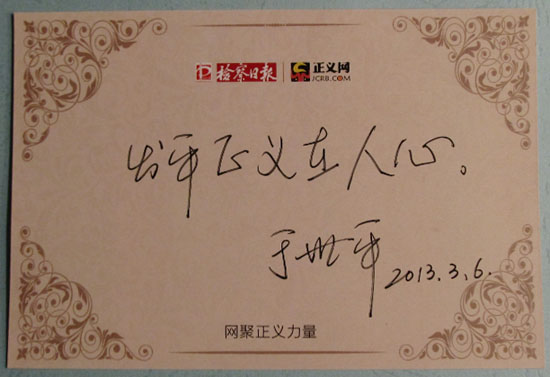 检察日报 正义网
JCRB.COM
公平正义在人心。
于世平 2013.3.6.
网聚正义力量